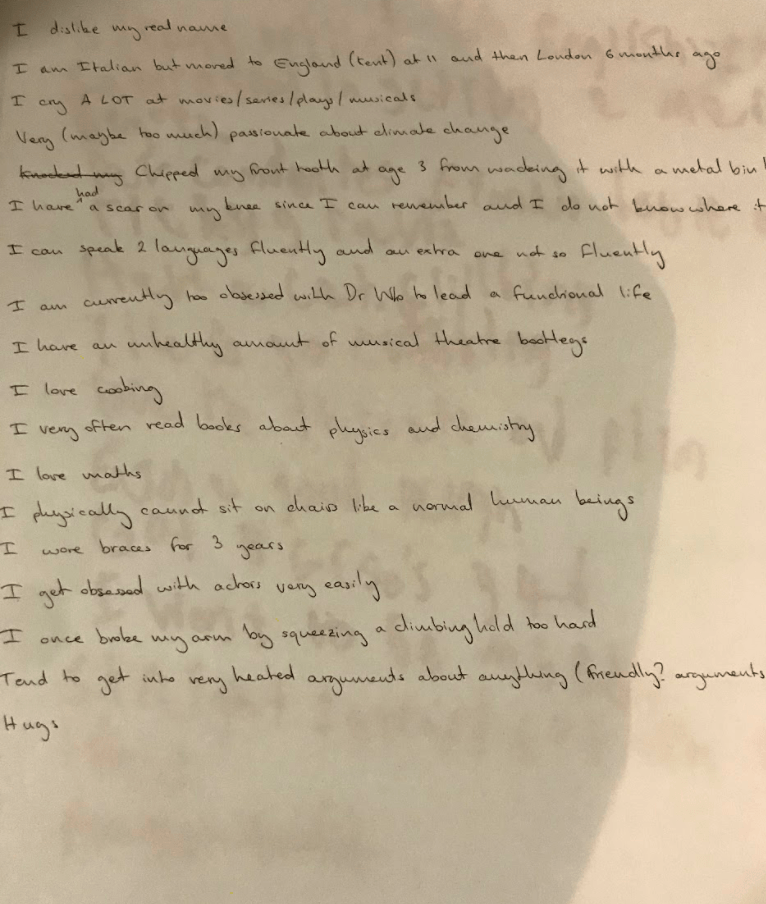 I dislike my real name
I am Italian but moved to England (Kent) at 11 and then London 6 months ago
I cry A LOT at movies/series/plays/musicals
Very (maybe too much) passionate about climate change
Knocked my Chipped my front tooth at age 3 from wacking it with a metal bin
I have had a scar on my knee since I can remember and I do not know where it
I can speak 2 languages fluently and an extra one not so fluently
I am currently too obsessed with Dr Who to lead a functional life
I have an unhealthy amount of musical theatre bootlegs
I love cooking
I very often read books about physics and chemistry
I love maths
I physically cannot sit on chairs like a normal human beings
I wore braces for 3 years
I get obsessed with actors very easily
I once broke my arm by squeezing a climbing hold too hard
Tend to get into very heated arguments about anything (friendly? arguments
Hugs